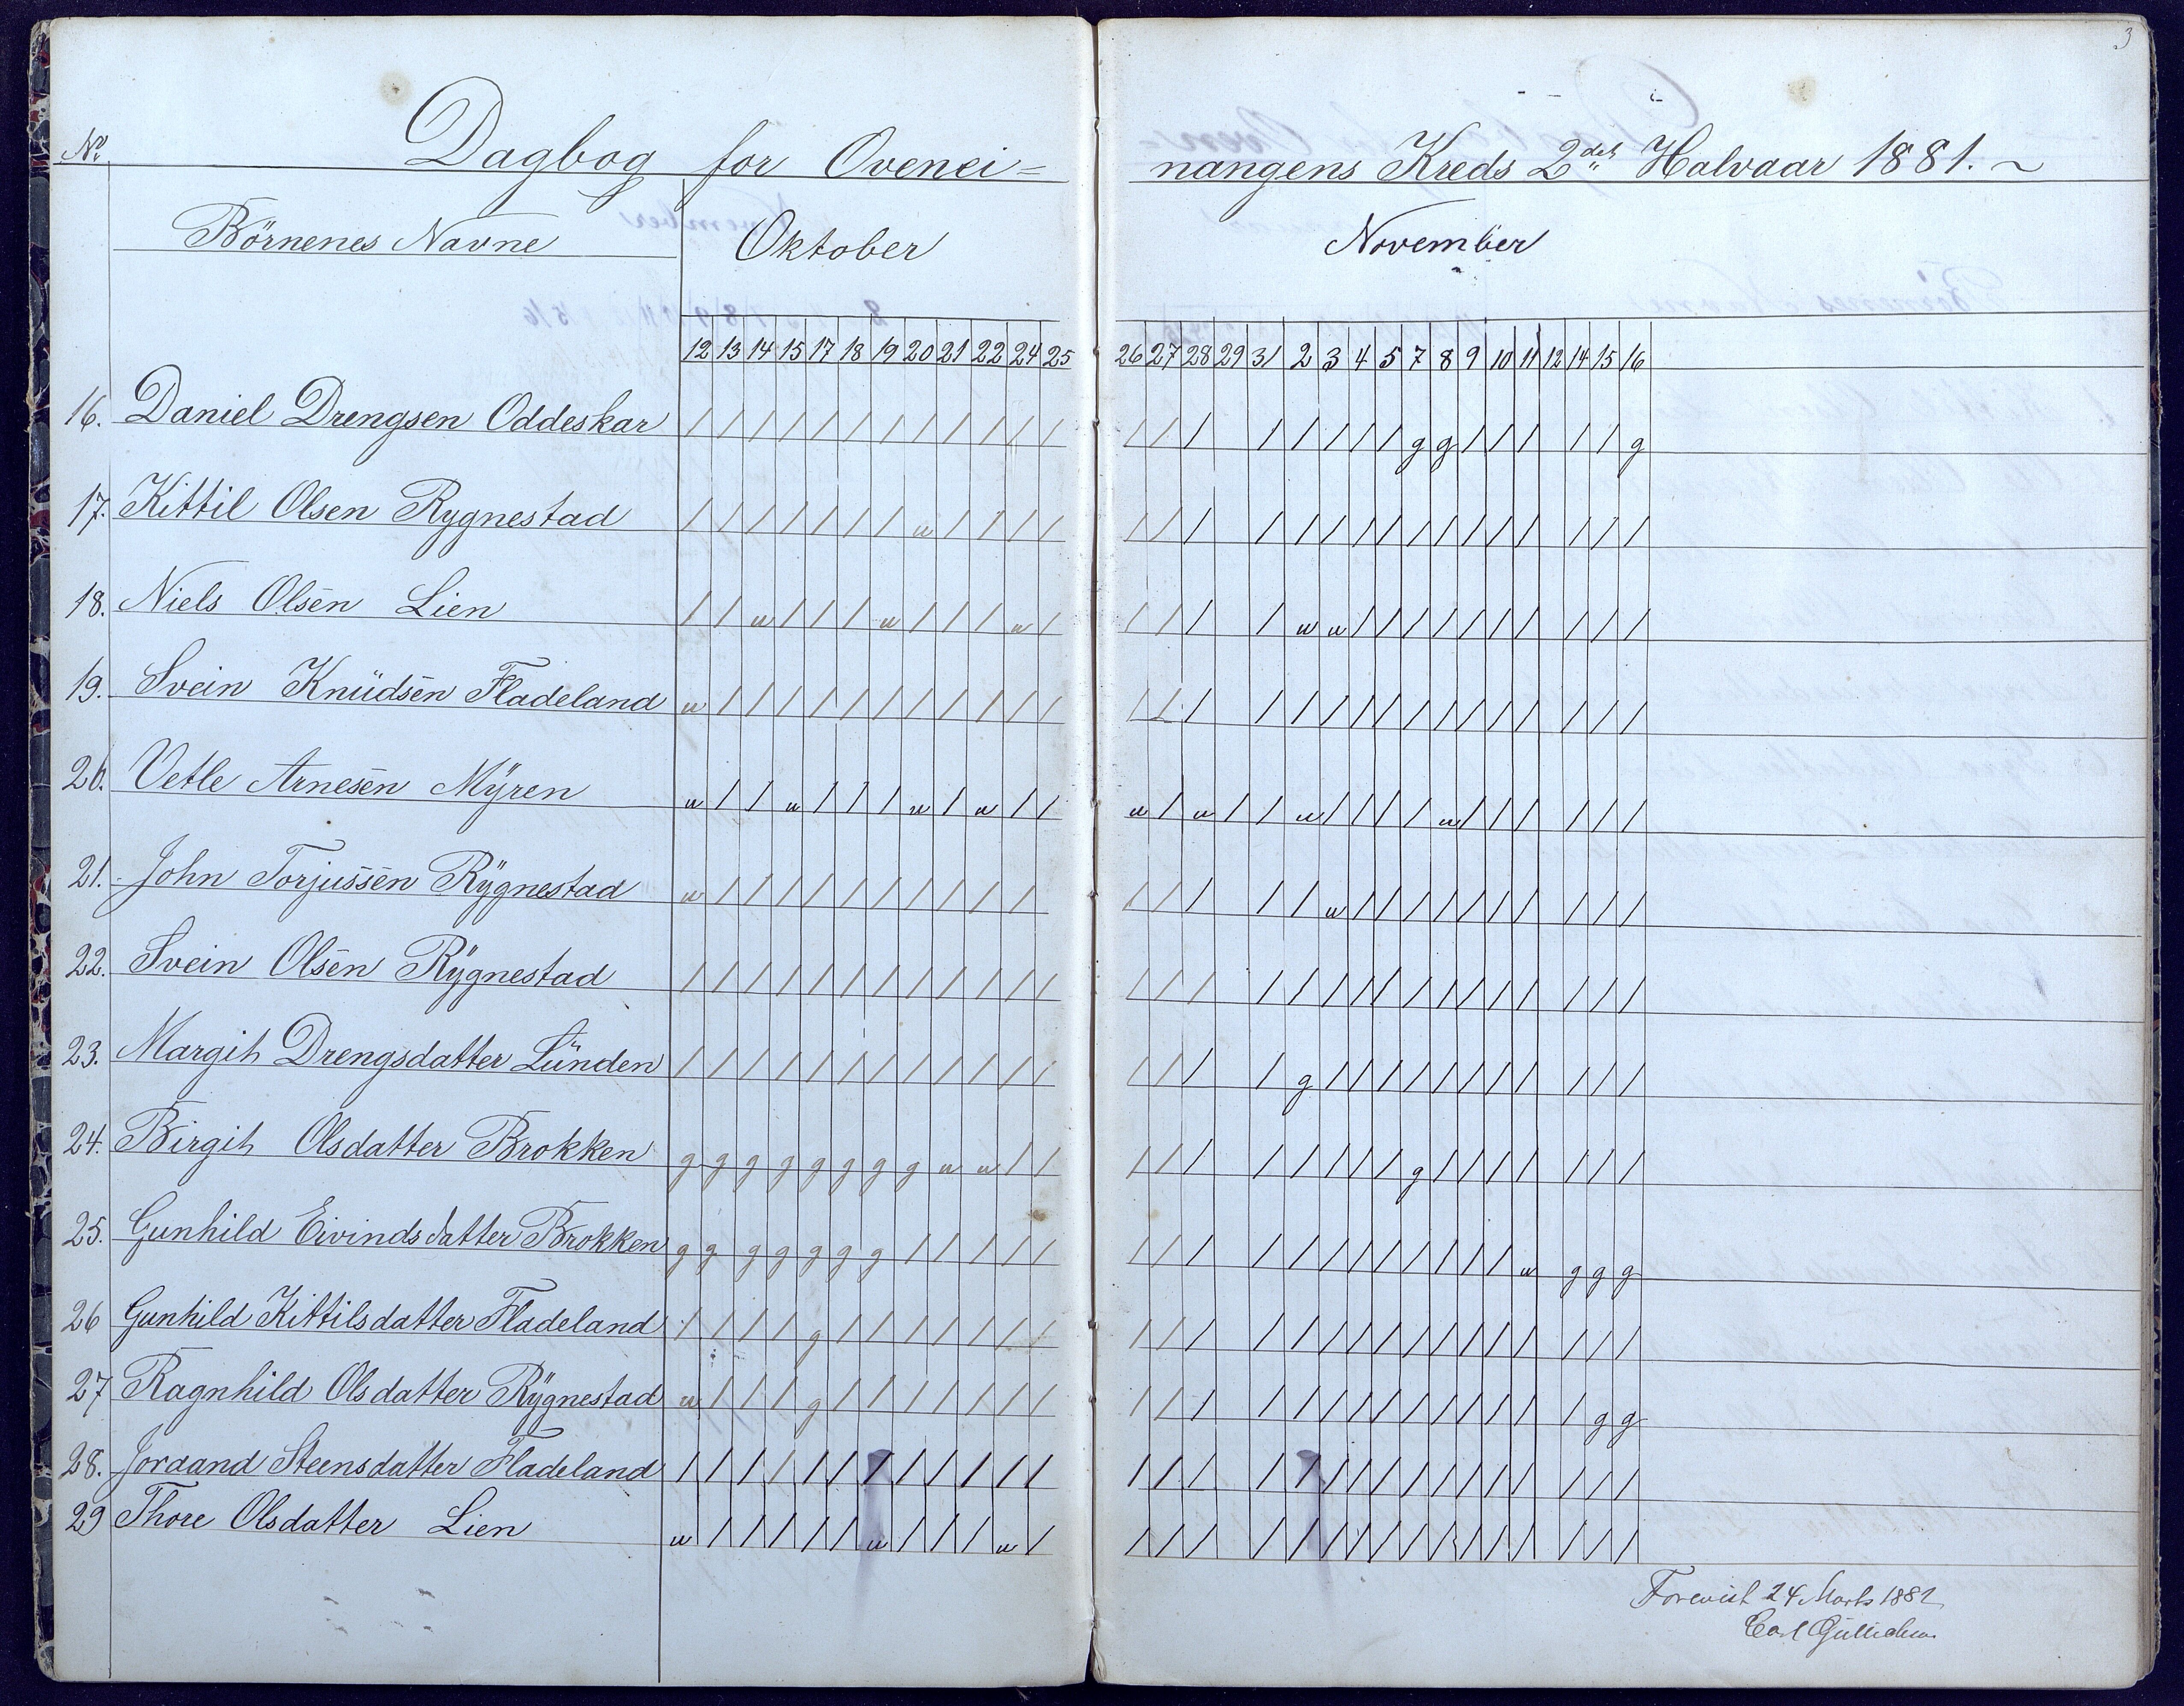 3
No Dagbog for Ovenei= nangens Kreds 2det Halvaar 1881. ~
Börnenes Navne Oktober November
12 13 14 15 17 18 19 20 21 22 24 25 26 27 28 29 31 2 3 4 5 7 8 9 10 11 12 14 15 16
16. Daniel Drengsen Oddeskar / / / / / / / / / / / / / / / / / / / / g g / / / / / g
17. Kittil Olsen Rygnestad / / / / / / / u / / / / / / / / / / / / / / / / / / / /
18. Niels Olsen Lien / / u / / / u / / / u / / / / / u u / / / / / / / / / /
19. Svein Knüdsen Fladeland u / / / / / / / / / / / / / / / / / / / / / / / / / / /
20. Vetle Arnesen Myren u / / u / / / u / u / / u / u / / u / / / / u / / / / / /
21. John Torjussen Rygnestad u / / / / / / / / / / / / / / / u / / / / / / / / / /
22. Svein Olsen Rygnestad / / / / / / / / / / / / / / / / / / / / / / / / / / / /
23. Margit Drengsdatter Lünden / / / / / / / / / / / / / / / / g / / / / / / / / / / /
24. Birgit Olsdatter Brokken g g g g g g g g u u / / / / / / / / / / g / / / / / / /
25. Gunhild Eivindsdatter Brokken g g g g g g g / / / / / / / / / / / / / / / / / u g g g
26 Gunhild Kittilsdatter Fladeland / / / / g / / / / / / / / / / / / / / / / / / / / / / /
27 Ragnhild Olsdatter Rygnestad u / / / g / / / / / / / / / / / / / / / / / / / / / g g
28. Joraand Steensdatter Fladeland / / / / / / / / / / / / / / / / / / / / / / / / / / / /
29 Thore Olsdatter Lien u / / / / / u / / / u / / / / / / / / / / / / / / / / /
Forevist 24 Marts 1882
Carl